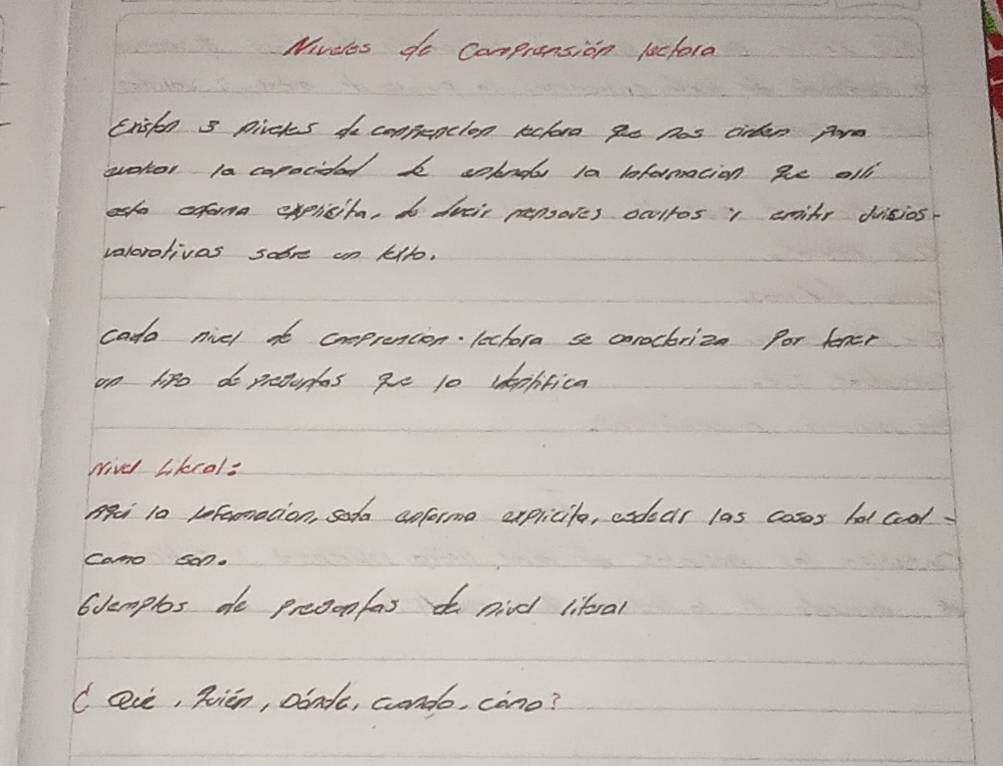 Niveles de Comprensión lectora
Existen 3 niveles de comprencion lectora que nos piden para
evaluar la capacidad de entender la informacion que alli
esta aforma explicita, de decir mensajes ocultos y emitir duisios
valorativos sobre un texto.
Cada nivel de comprencion. lectora se caracteriza por tener
un tipo de preguntas que lo identifica
Nivel Literal:
Aqui la informacion, seda aforma explicita, esdecir las cosas tal cual
como son.
Ejemplos de preguntas de nivel literal
¿ Qué, Quién, Dónde, cuando, cómo?